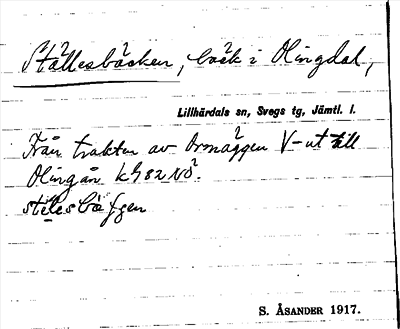 Ställesbäcken, bäck i Olingdal,
Lillhärdals sn, Svegs tg, Jämtl. l.
Från trakten av Ormäggen V-ut till
Olingån k 982 NÖ.
S. ÅSANDER 1917.